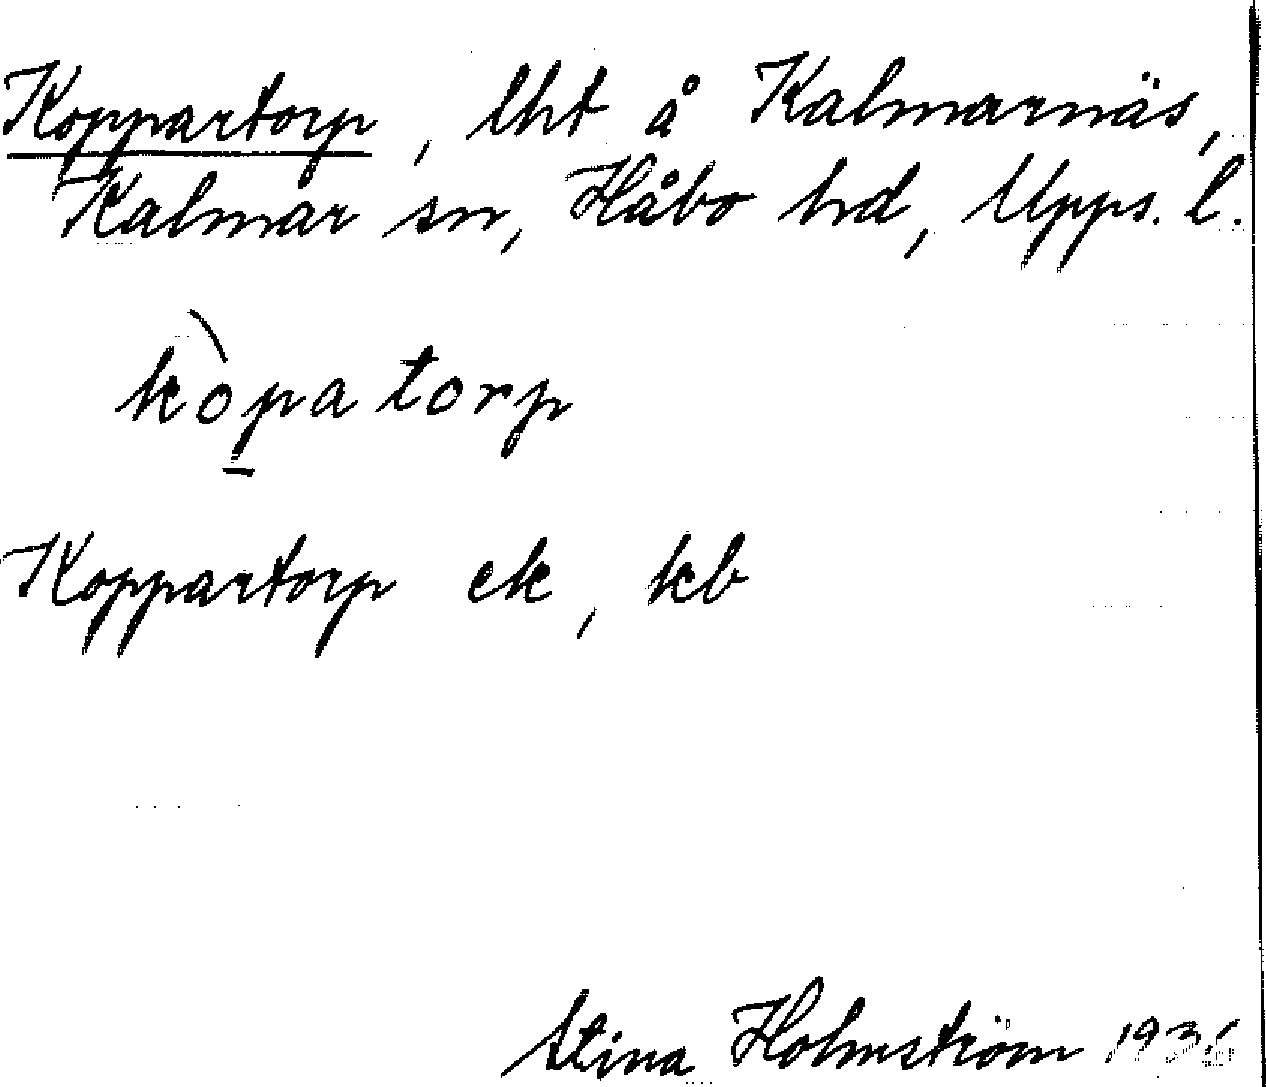 Koppartorp, lht å Kalmarnäs,
Kalmar sn, Håbo hd, Upps. l.
kòpatorp
Koppartorp ek, kb
Stina Holmström 1936